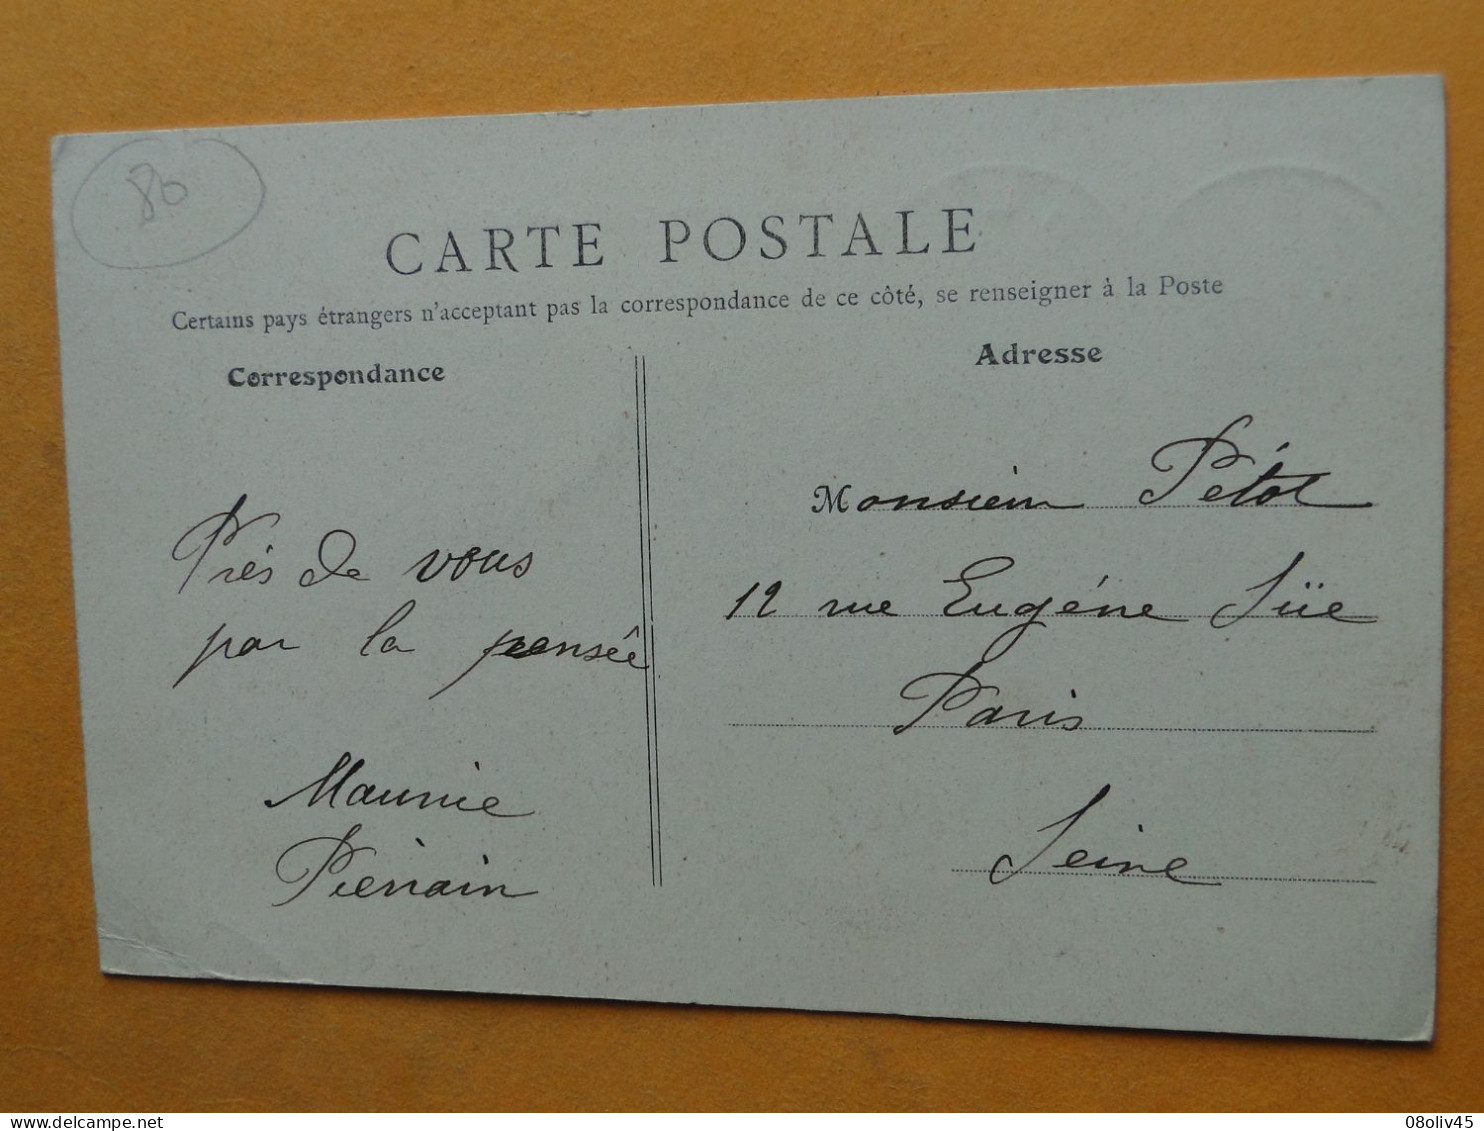 80
CARTE POSTALE
Certains pays étrangers n'acceptant pas la correspondance de ce côté, se renseigner à la Poste
Correspondance
Près de vous
par la pensée
Maurice
Pierrain
Adresse
Monsieur Pétot
12 rue Eugéne Süe
Paris
Seine
08oliv45